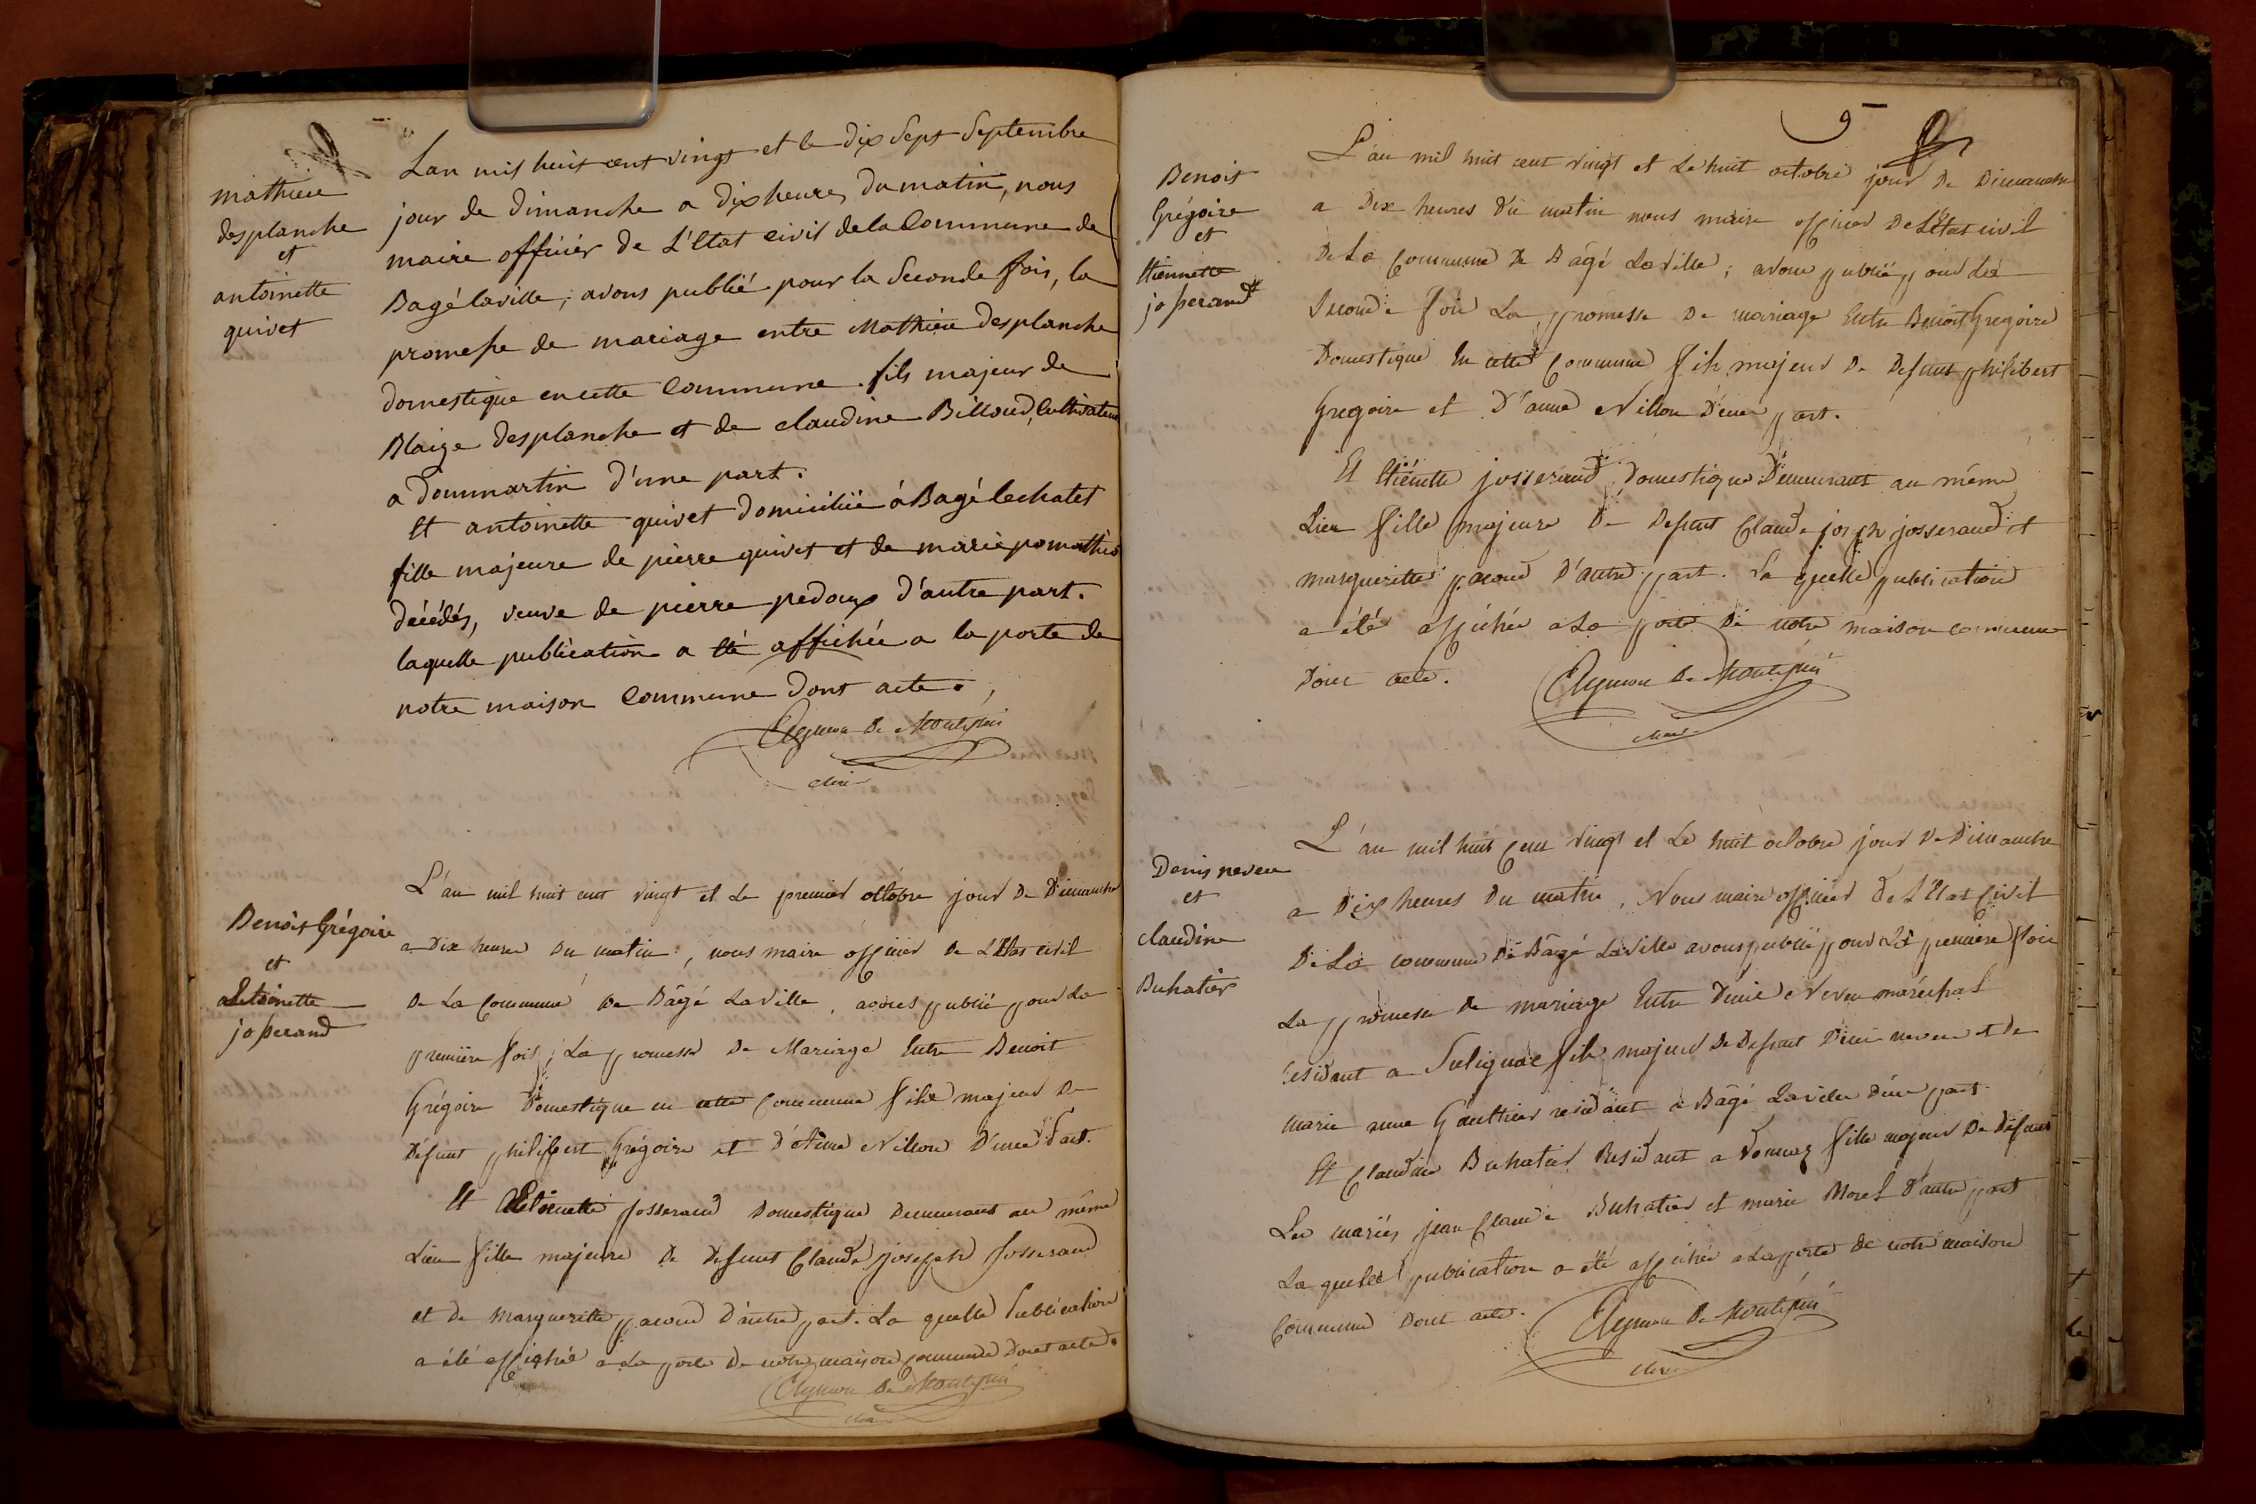 mathieu
desplanche
et
antoinette
quivet
Lan mil huit cent vingt et le dix sept Septembre
jour de dimanche a dix heures du matin, nous
maire officier de L'Etat civil de la Commune de
Bagé laville, avons publié pour la Seconde fois, la
promesse de mariage entre Mathieu desplanche
domestique en cette Commune. fils majeur de
Blaize desplanche et de claudine Billoud, Cultivateurs
a dommartin d'une part.
Et antoinette quivet domiciliée à Bagé lechatel
fille majeure de pierre quivet et de marie pomathios
décédés, veuve de pierre pedoux d'autre part.
laquelle publication a été affichée a la porte de
notre maison Commune dont acte.
Aymon De Montépin
Maire
Benoit Grégoire
et
josserand
L'an mil huit cent vingt et Le premier octobre jour De Dimanche
a Dix heures Du matin, nous maire officier De L'Etat civil
De La Commune De Bâgé LaVille, avons publié pour La
premiere fois, La promesse De Mariage Entre Benoit
Grégoire Domestique en cette Commune fils majeur De
Défunt philibert Grégoire et D'Anne Nillon D'une Part.
Et josserand Domestique Demeurant au même
Lieu fille majeure De Defunt Claude joseph josserand
et De Marguerite pacoud D'autre part. La quelle Publication
a été affichée a La porte De notre maison commune Dont acte.
Aymon De Montépin
Maire
9
Benoit
Grégoire
et
Etiennette
josserand
L'an mil huit cent vingt et Le huit octobre jour De Dimanche
a Dix heures Du matin nous maire officier De L'Etat civil
De La Commune De Bâgé LaVille; avons publié pour La
Seconde fois La promesse De mariage Entre Benoit Gregoire
Domestique En cette Commune fils majeur De Defunt philibert
Gregoire et D'anne Nillon D'une part.
Et Etiénette josserand Domestique Demeurant au même
Lieu fille majeure De Defunt Claude joseph josserand et
marguerite pacoud D'autre part. La quelle publication
a été affichée a La porte De notre maison commune
Dont acte.
Aymon De Montépin
Maire
Denis neveu
et
claudine
Buhatier
L'an mil huit Cent vingt et Le huit octobre jour De Dimanche
a Dix heures Du matin, Nous maire officier De L'Etat Civil
De La commune De Bâgé LaVille avons publié pour La premiere fois
La promesse De mariage Entre Denis Neveu maréchal
residant a Sulignat fils majeur De Defunt Denis neveu et De
marie anne Gauthier residant a Bâgé LaVille d'une part
Et Claudine Buhatier Residant a Vonnaz fille majeur De Defunt
Les mariés jean Claude Buhatier et marie Morel D'autre part
La quelle publication a été affichée a La porte De notre maison
Commune Dont acte.
Aymon De Montépin
Maire